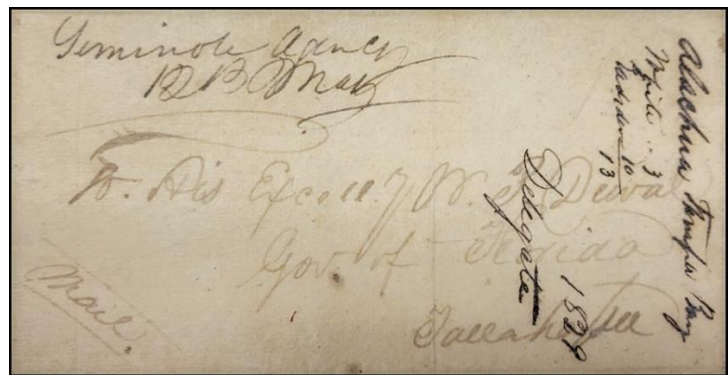 Seminole Agency
12 May
To His Excell.y W. P. Duval
Gov. of Florida
Tallahassee
Mail.
Alachua Tampa Bay
White .. 3
10
13
Delegate
1829